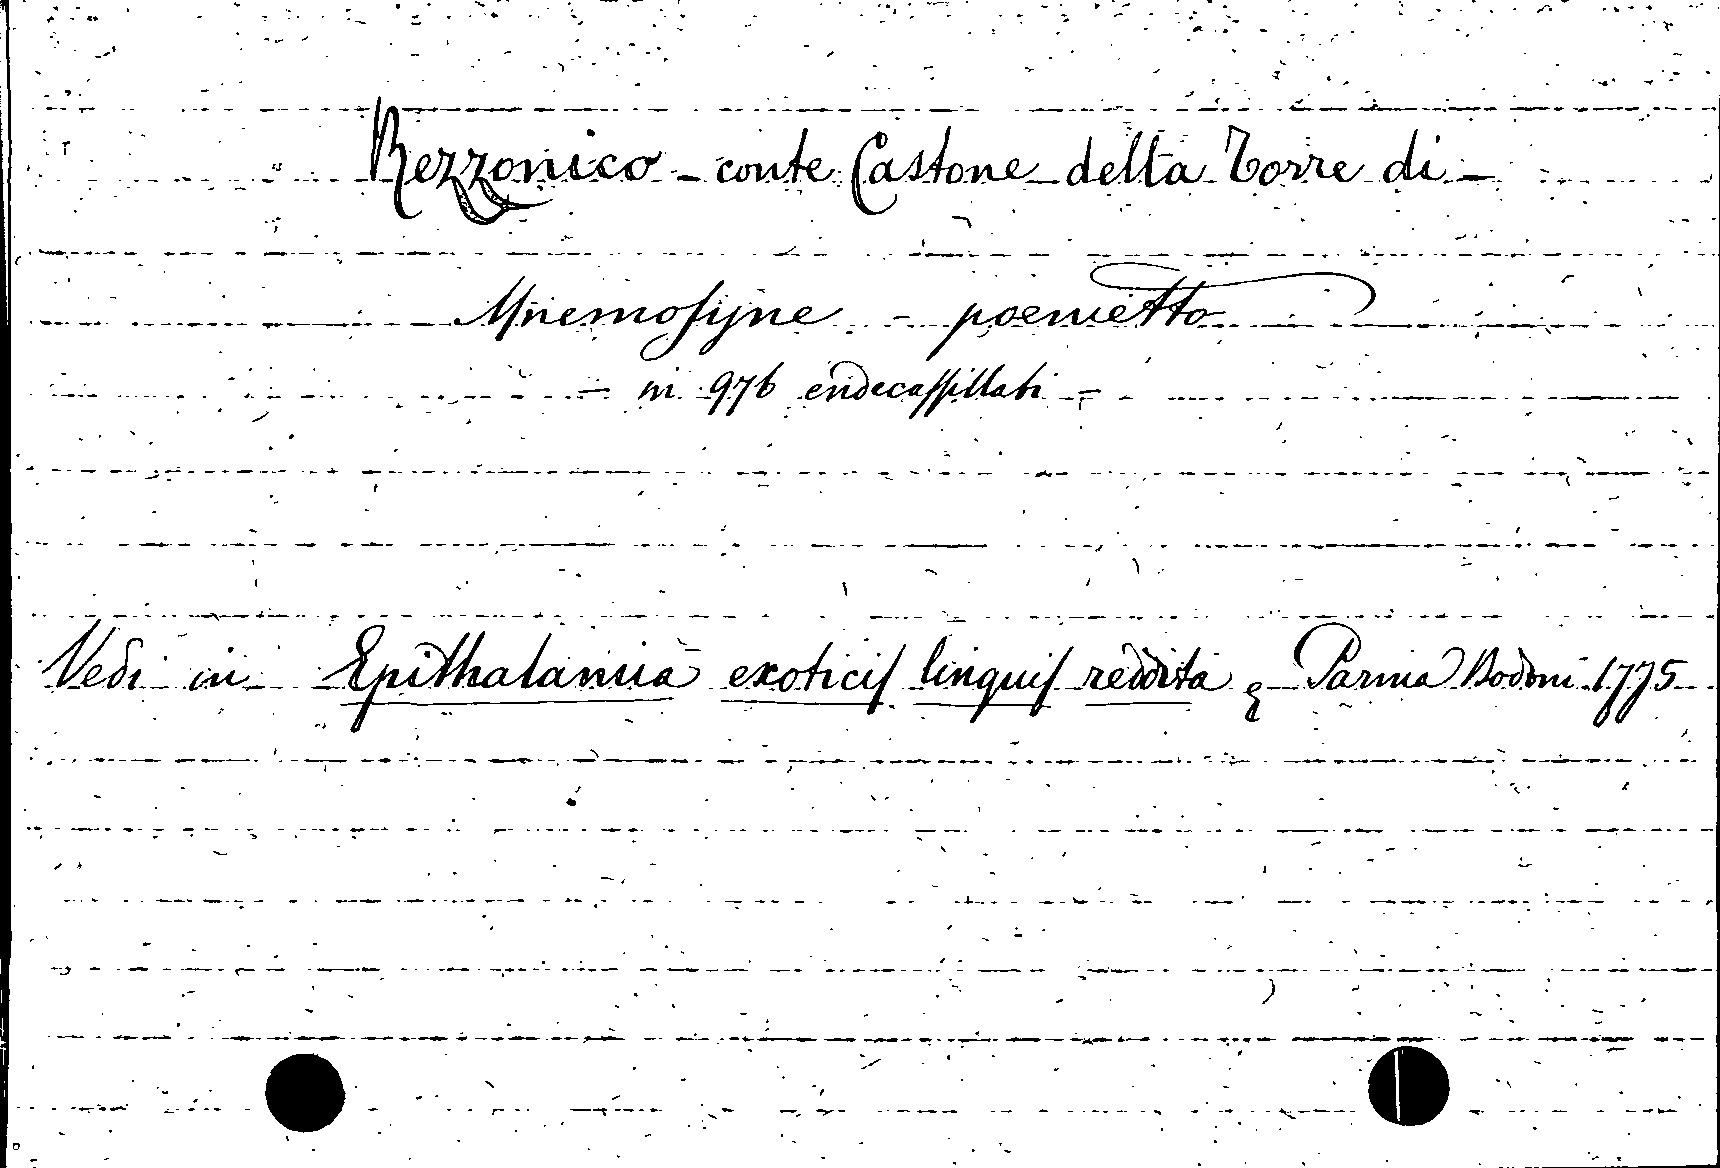 Rezzonico - conte Castone della Torre di -
Mnemosyne - poemetto
- in 976 endecassillabi -
Vedi in Epithalamia exoticis linguis reddita, Parma Bodoni 1775